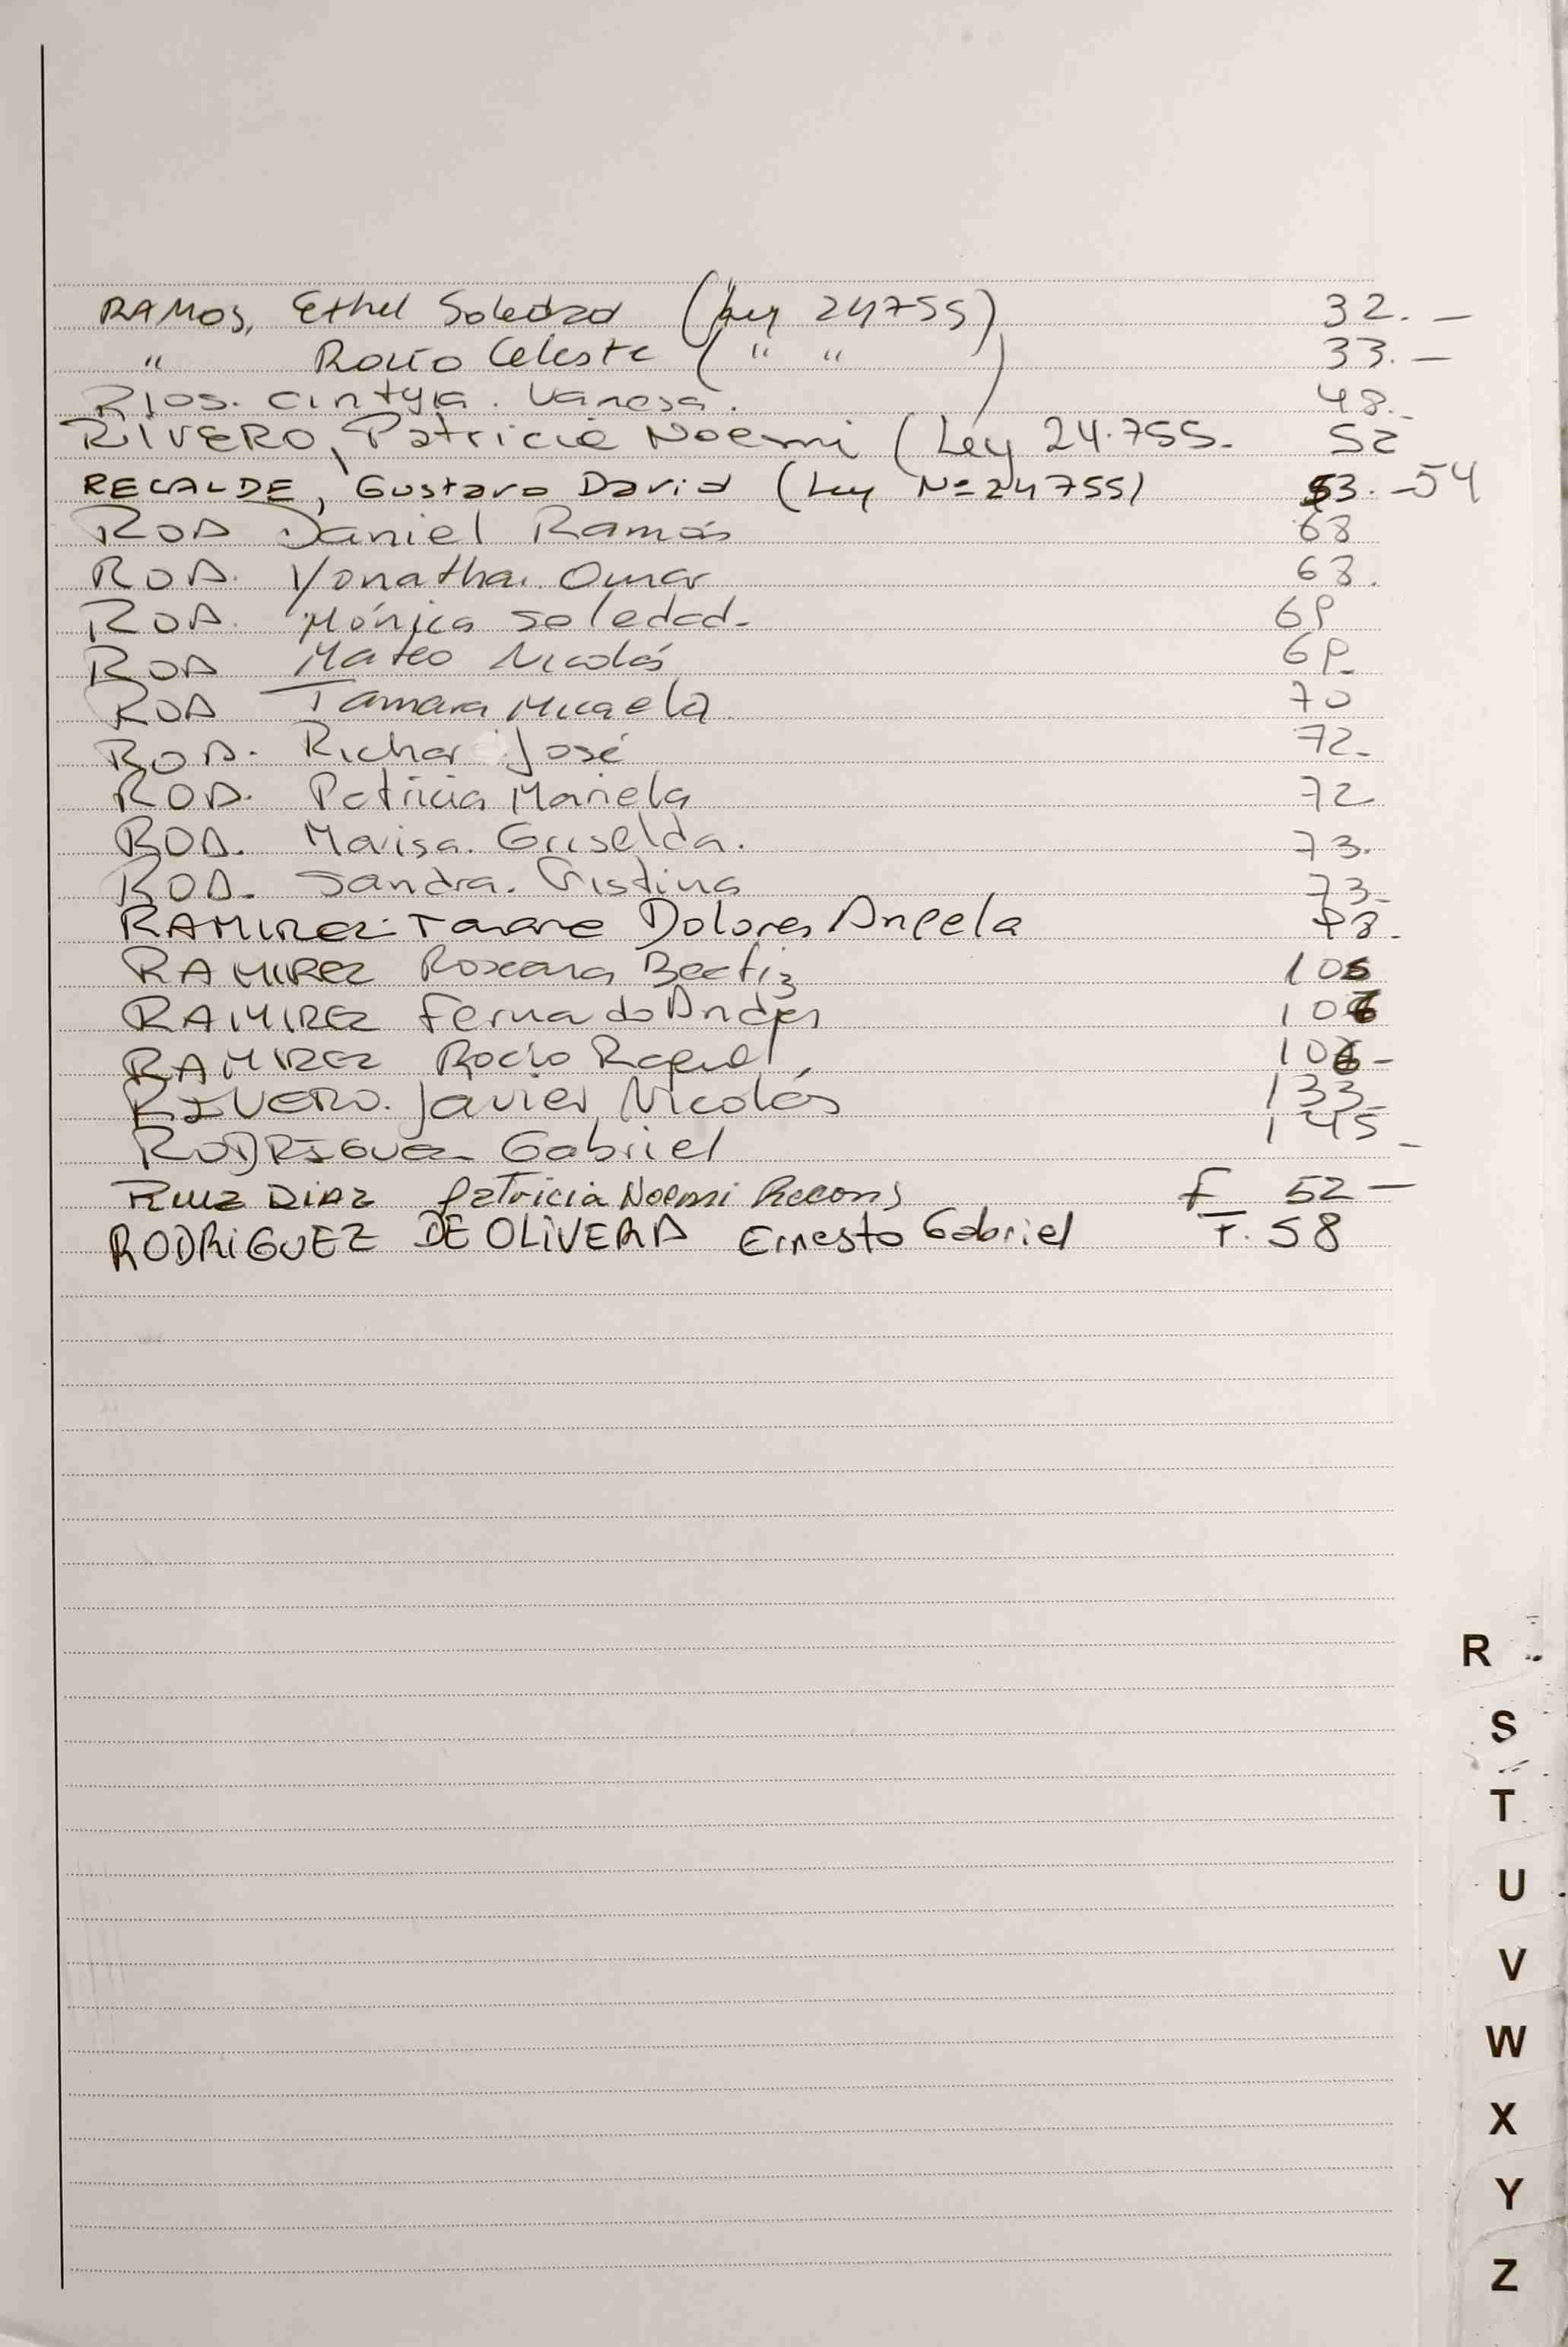 RAMOS, Ethel Soledad (Ley 24755) 32. —
" Rocío Celeste ( " " ) 33. —
Rios. Cintya. Vanesa. 48.-
RIVERO, Patricia Noemi (Ley 24.755. 52
RECALDE, Gustavo David (Ley Nº 24755) 53. -54
ROA Daniel Ramós 68
ROA. Yonathan Omar 68.
ROA. Mónica Soledad. 69
ROA Mateo Nicolás 69.
ROA Tamara Micaela 70
ROA. Richar José 72.
ROA. Patricia Mariela 72
ROA. Marisa. Griselda. 73.
ROA. Sandra. Cristina 73.
RAMIREZ Dolores Angela 98.
RAMIREZ Roxana Beatriz 105
RAMIREZ Fernando Andrés 106
RAMIREZ Rocío Raquel, 106-
RIVERO. Javier Nicolás 133
RODRIGUEZ Gabriel 145-
RUIZ DIAZ Patricia Noemi f 52 —
RODRIGUEZ DE OLIVERA Ernesto Gabriel F. 58
R
S
T
U
V
W
X
Y
Z